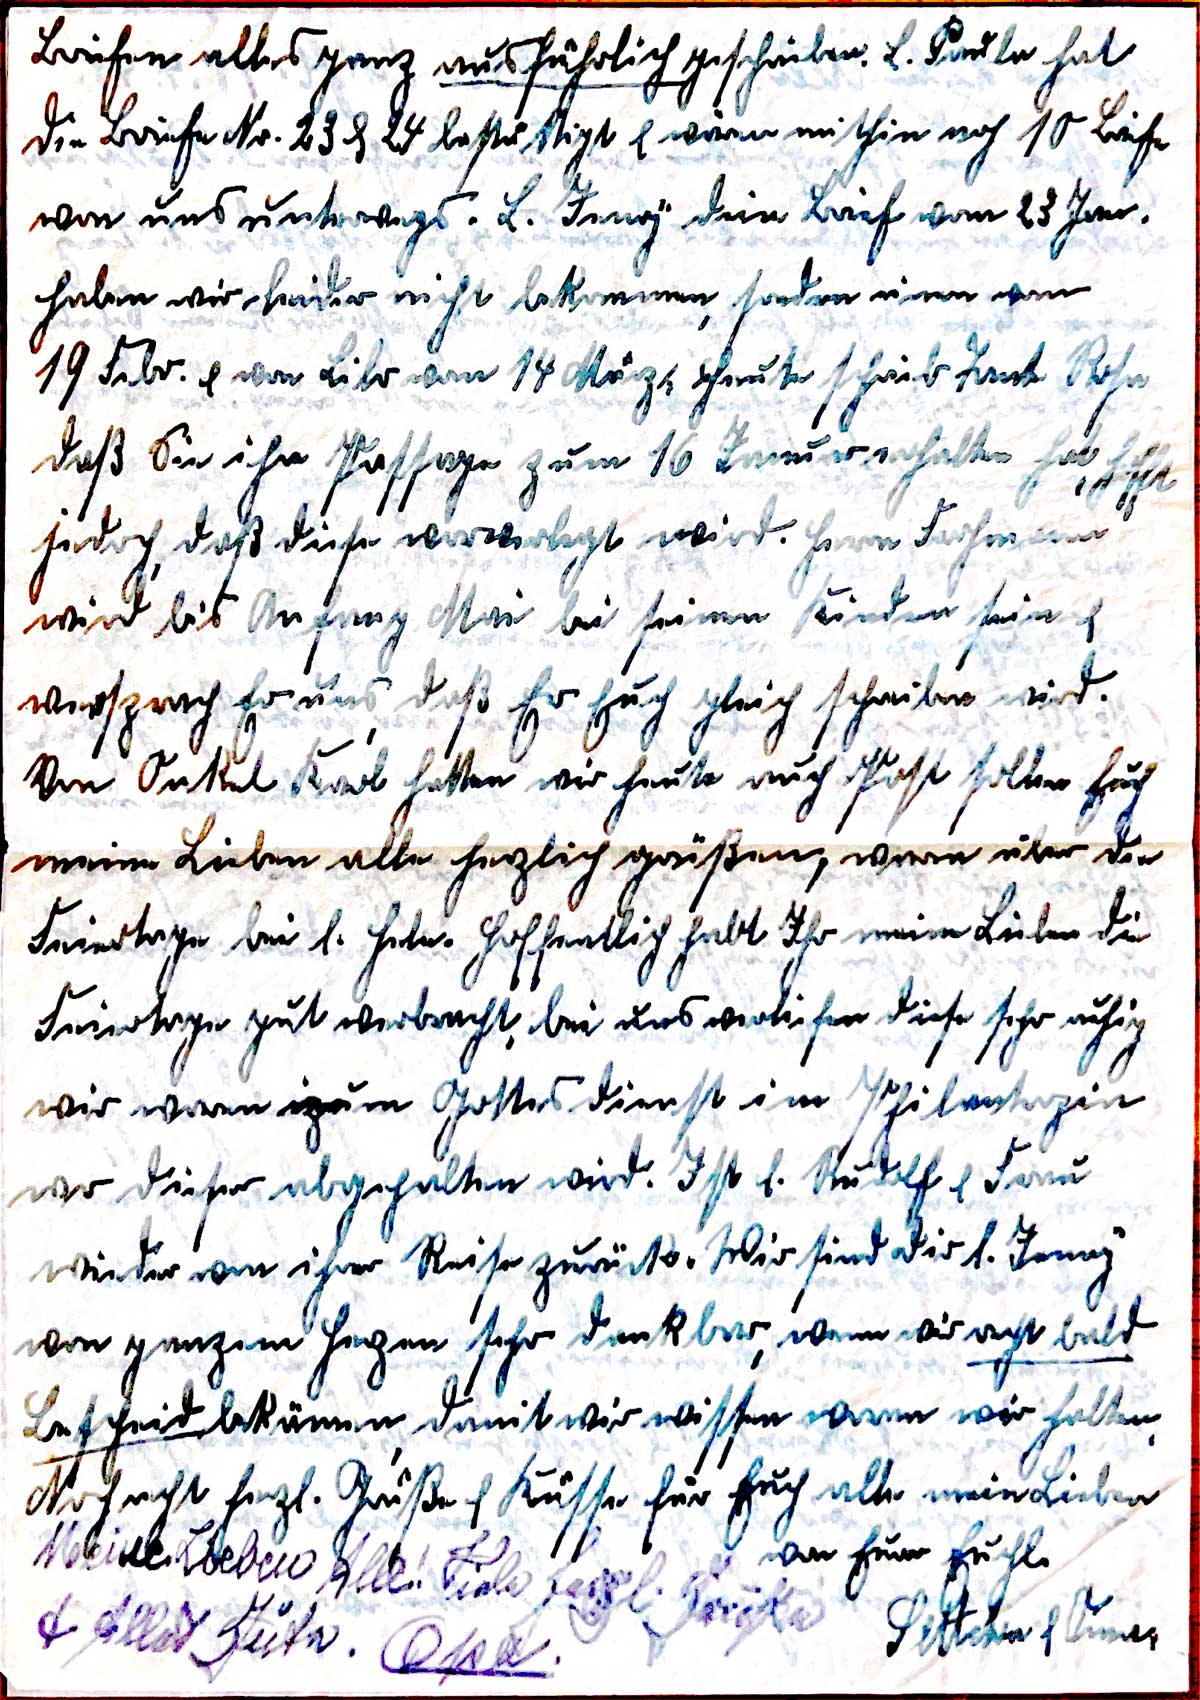 Briefen alles ganz ausführlich geschrieben. L. Paula hat
die Briefe Nr. 23 & 24 bestätigt & wären mithin noch 10 Briefe
von uns unterwegs. L. Jenny dein Brief vom 23 Jan.
haben wir leider nicht bekommen, sondern einen vom
19 Febr. & von Lilo vom 14 März, heute schrieb Tante Rosa
daß Sie ihre Passage zum 16 Januar erhalten hat, hofft
jedoch, daß diese vorverlegt wird. Herr Frohmann
wird bis Anfang Mai bei seinen Kindern sein &
versprach Er uns, daß Er Euch gleich schreiben wird.
Von Onkel Karl hatten wir heute auch Post sollen Euch
meine Lieben alle herzlich grüßen, waren über die
Feiertage bei l. Hede. Hoffentlich habt Ihr meine Lieben die
Feiertage gut verbracht, bei uns verliefen diese sehr ruhig
wir waren zum Gottesdienst im Philantropin
wo dieser abgehalten wird. Ist l. Rudolf & Frau
wieder von ihrer Reise zurück. Wir sind dir l. Jenny
von ganzem Herzen sehr dankbar, wenn wir recht bald
Bescheid bekämen, damit wir wissen woran wir halten.
Noch recht herzl. Grüße & Küsse für Euch alle meine Lieben
von Eurer Euchl.
Meine Lieben Alle! Viele herzl. Grüße
& Alles Gute. Opa.
Settchen &